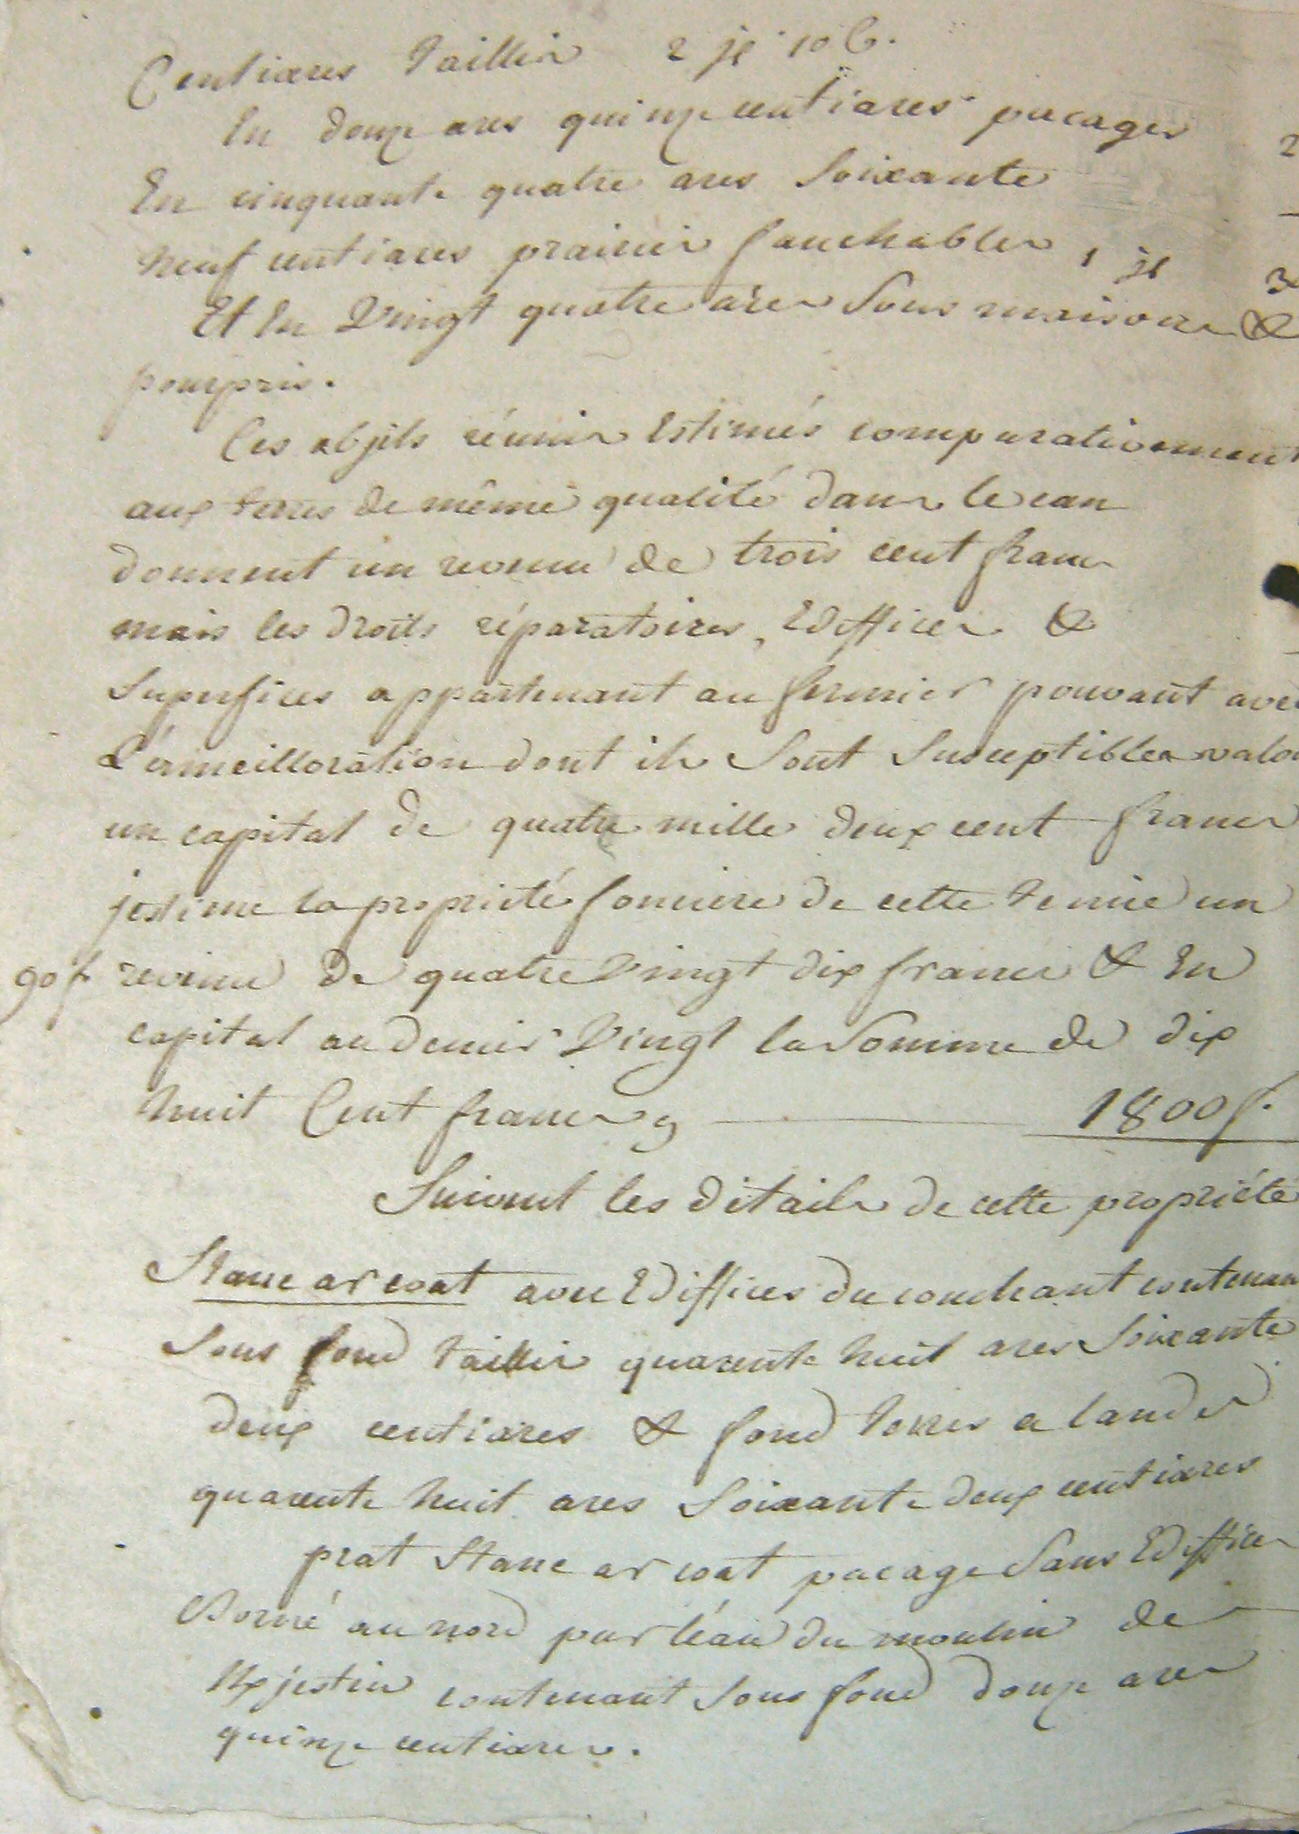 Centiares taillis 2 jx 10 C.
En douze ares quinze centiares pacages
En cinquante quatre ares Soixante
neuf centiares prairies fauchables 1 jx
Et En Vingt quatre ares Sous maisons &
pourpris.
Ces objets réunis Estimés comparationnement
aux terres de même qualité dans le can
donnent un revenu de trois cent francs
mais les droits réparatoires, Ediffices &
Superfices appartenant au fermier pouvant avec
L'ameilloration dont ils Sont Susceptibles valoi
un capital de quatre mille deux cent francs
jestime la propriété fonciere de cette tenüe un
90 f revenu de quatre Vingt dix francs & En
capital au denier Vingt la Somme de dix
huit Cent francs 1800 f.
Suivent les détails de cette propriété
Stanc ar coat avec Ediffices du couchant contenan
Sous fond taillis quarente huit ares Soixante
deux centiares & fond terres a landes
quarente huit ares Soixante deux centiares
prat Stanc ar coat pacage Sans Ediffices
Borné au nord par l'éau du moulin de
Kjestin contenant Sous fond douze ares
quinze centiares.